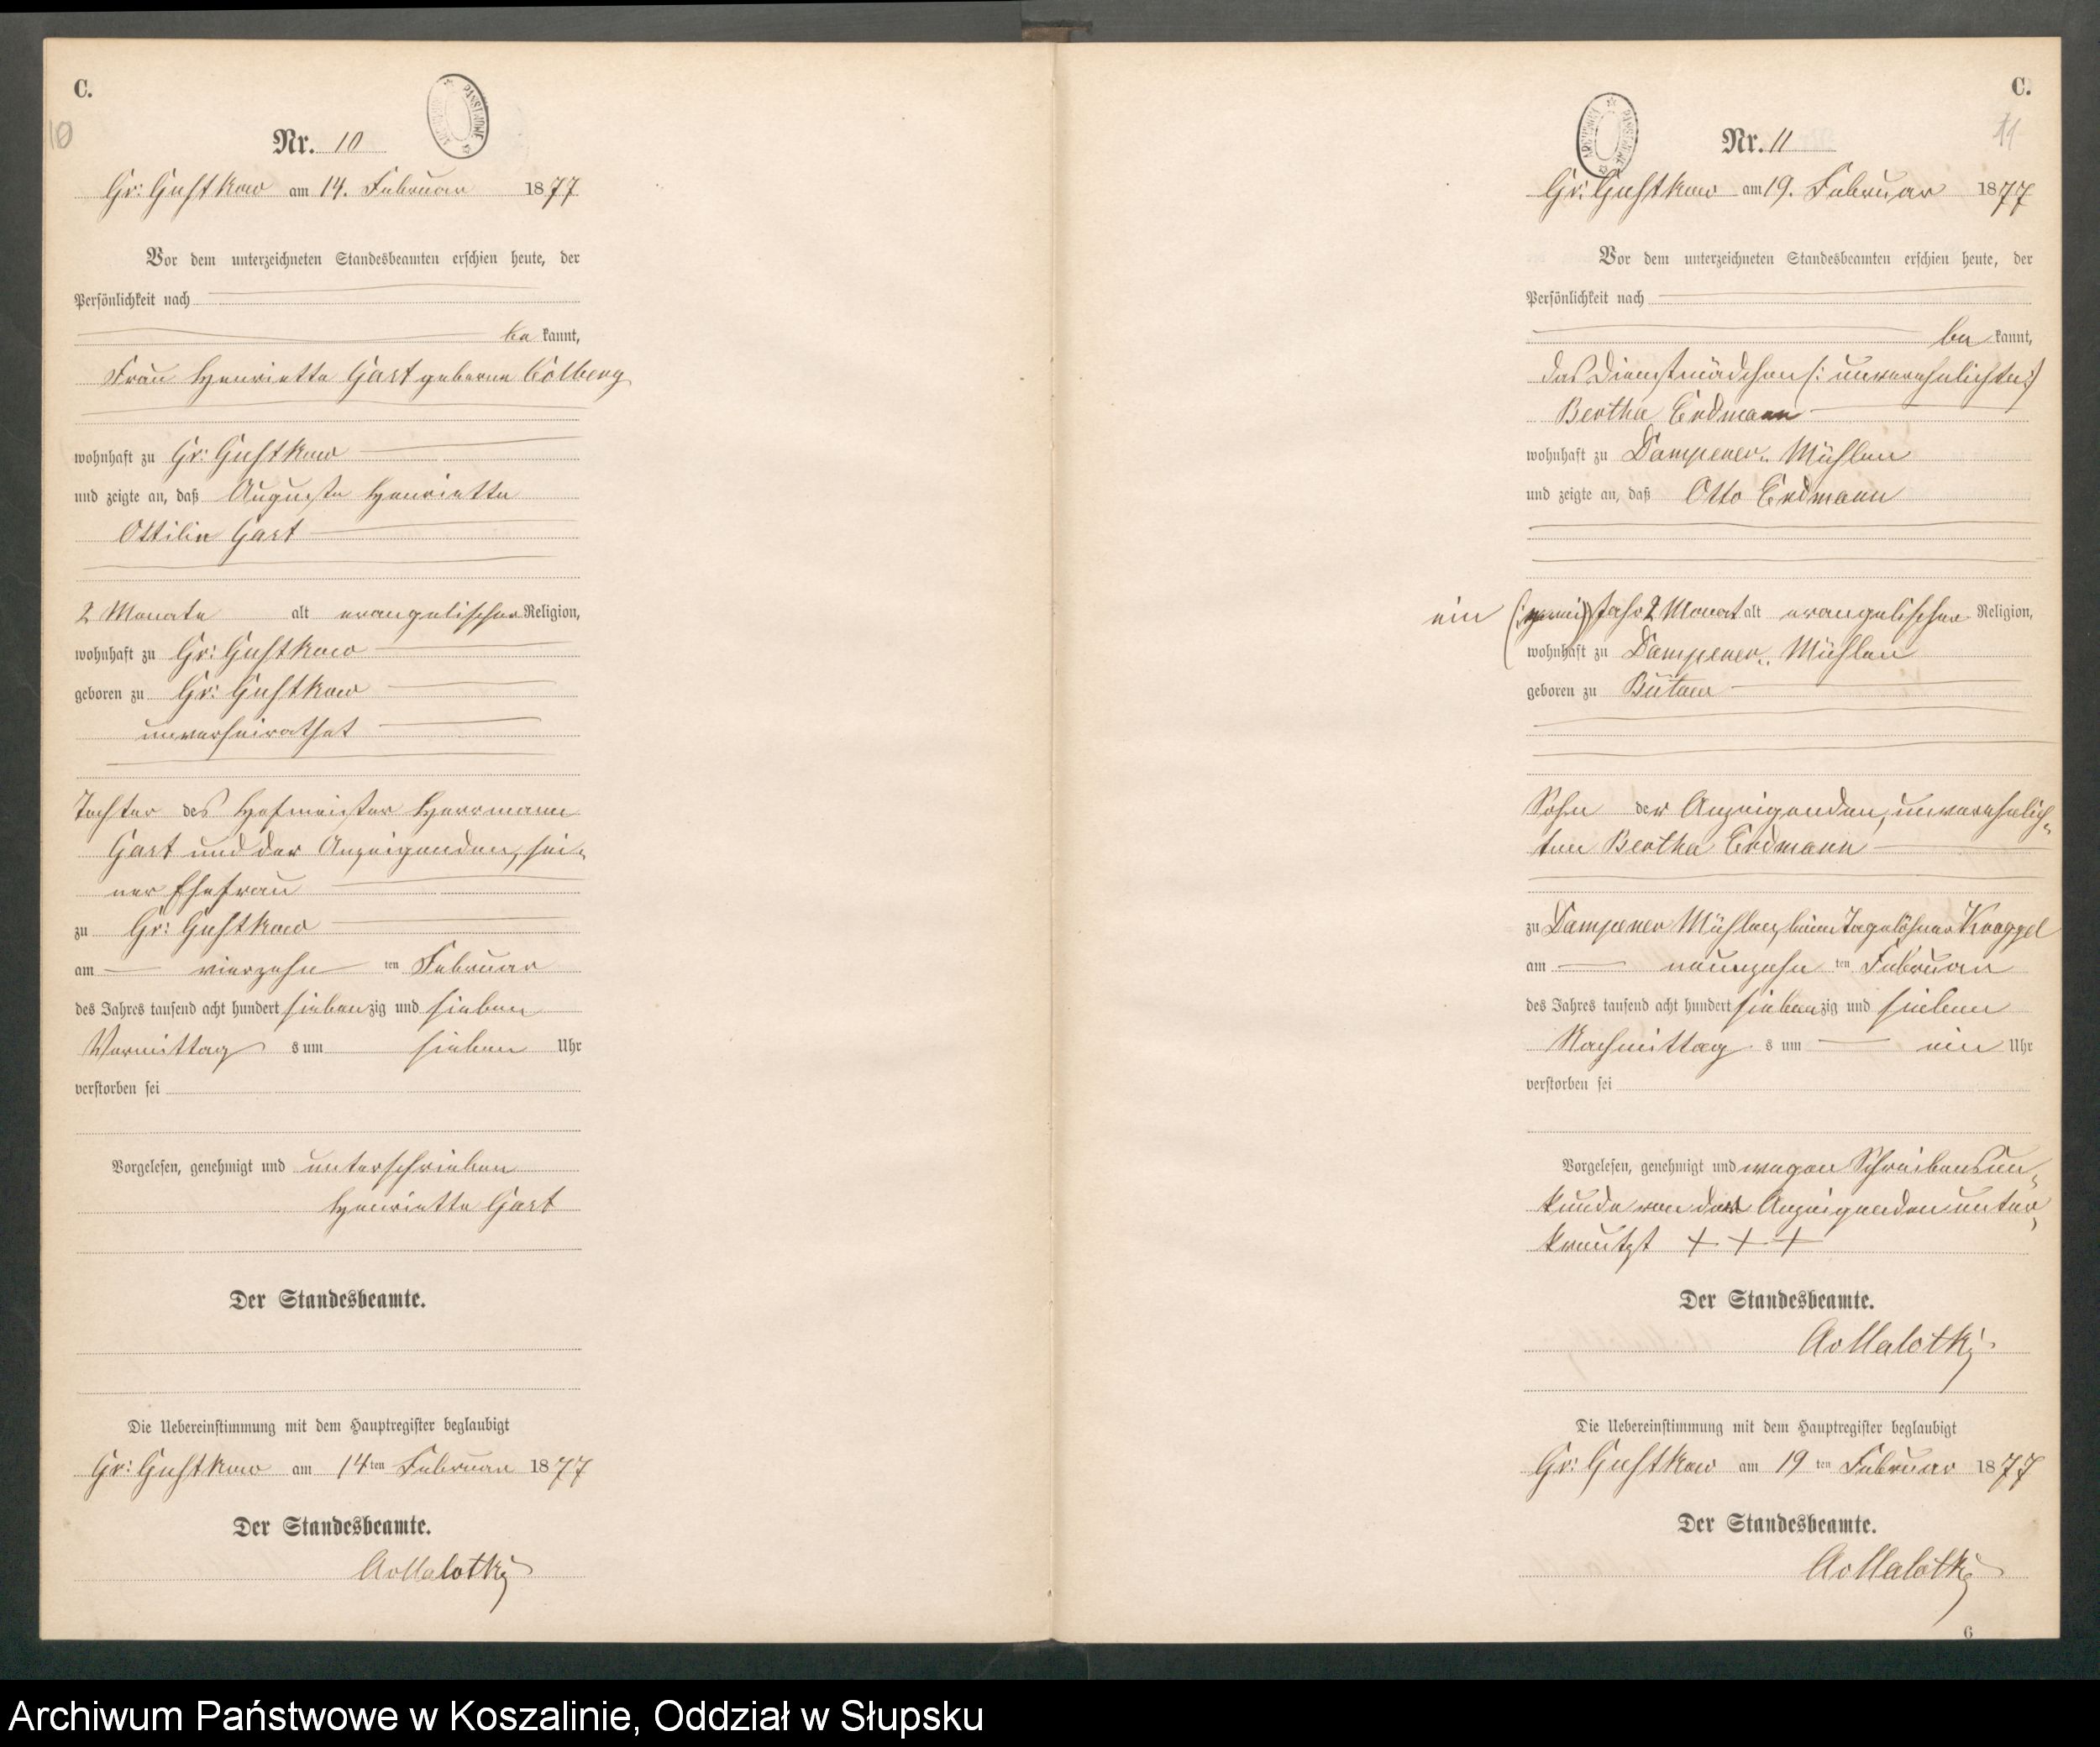 C.
10
Nr. 10
Gr: Gustkow am 14. Februar 1877
Vor dem unterzeichneten Standesbeamten erschien heute, der
Persönlichkeit nach
be kannt,
Frau Henriette Gast geborene Cölberg
wohnhaft zu Gr: Gustkow
und zeigte an, daß Auguste Henriette
Ottilie Gast
2 Monate alt evangelischer Religion,
wohnhaft zu Gr: Gustkow
geboren zu Gr: Gustkow
unverheirathet
Tochter des Hofmeister Herrmann
Gast und der Anzeigenden, sei-
ner Ehefrau
zu Gr: Gustkow
am vierzehn ten Februar
des Jahres tausend acht hundert siebenzig und sieben
Vormittag s um sieben Uhr
verstorben sei
Vorgelesen, genehmigt und unterschrieben
Henriette Gast
Der Standesbeamte.
Die Uebereinstimmung mit dem Hauptregister beglaubigt
Gr: Gustkow am 14ten Februar 1877
Der Standesbeamte.
AvMalotky
C.
11
Nr. 11
Gr: Gustkow am 19. Februar 1877
Vor dem unterzeichneten Standesbeamten erschien heute, der
Persönlichkeit nach
be kannt,
das Dienstmädchen (: unverehelichte:)
Bertha Erdmann
wohnhaft zu Dampener Mühlen
und zeigte an, daß Otto Erdmann
ein Jahr 2 Monat alt evangelischer Religion,
wohnhaft zu Dampener Mühlen
geboren zu Bütow
Sohn der Anzeigenden, unverehelich-
ten Bertha Erdmann
zu Dampener Mühlen, beim Tagelöhner Kroggel
am neunzehn ten Februar
des Jahres tausend acht hundert siebenzig und sieben
Nachmittag s um ein Uhr
verstorben sei
Vorgelesen, genehmigt und wegen Schreibensun-
kunde von der Anzeigenden unter-
kreutzt + + +
Der Standesbeamte.
AvMalotky
Die Uebereinstimmung mit dem Hauptregister beglaubigt
Gr: Gustkow am 19 ten Februar 1877
Der Standesbeamte.
AvMalotky
6
Archiwum Państwowe w Koszalinie, Oddział w Słupsku